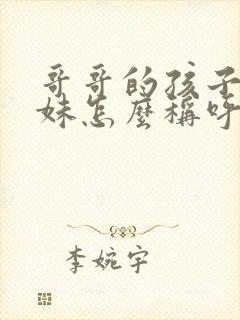 哥哥的孩子
妹怎麼稱呼
李婉宇